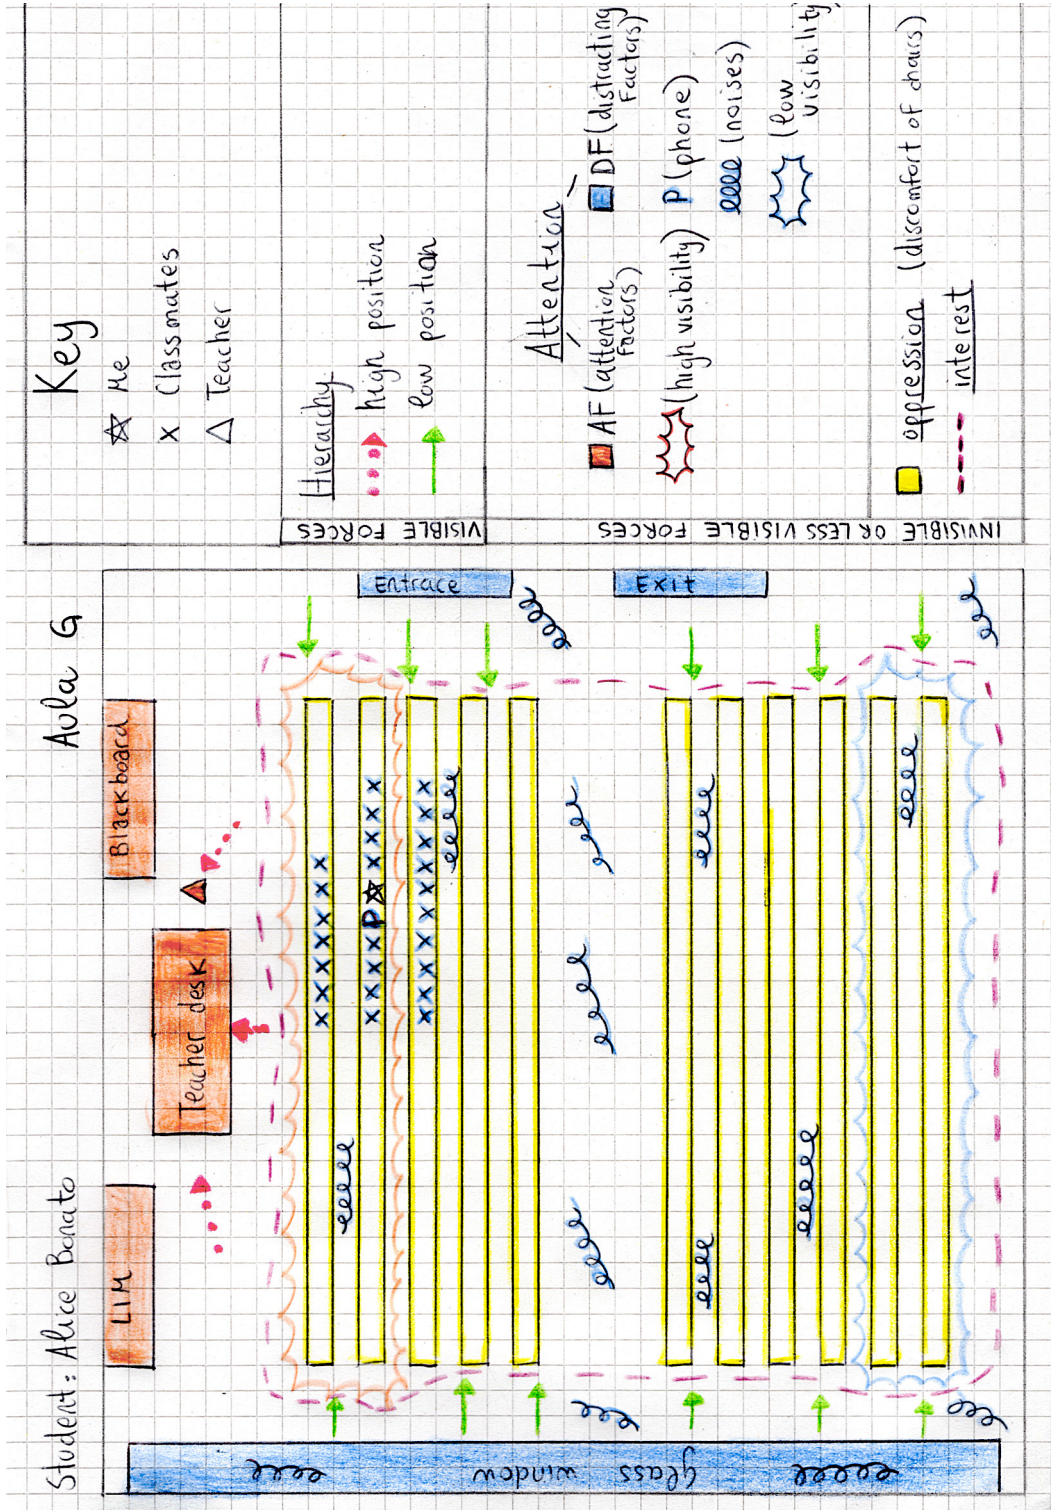 Student: Alice Bonato
Aula G
LIM
Teacher desk
Blackboard
Entrace
Exit
Glass window
P
Key
Me
x Classmates
Teacher
VISIBLE FORCES
Hierarchy
high position
low position
INVISIBLE OR LESS VISIBLE FORCES
Attention
AF (attention
Factors)
(high visibility)
DF (distracting
Factors)
P (phone)
(noises)
(low
visibility
oppression (discomfort of chairs)
interest